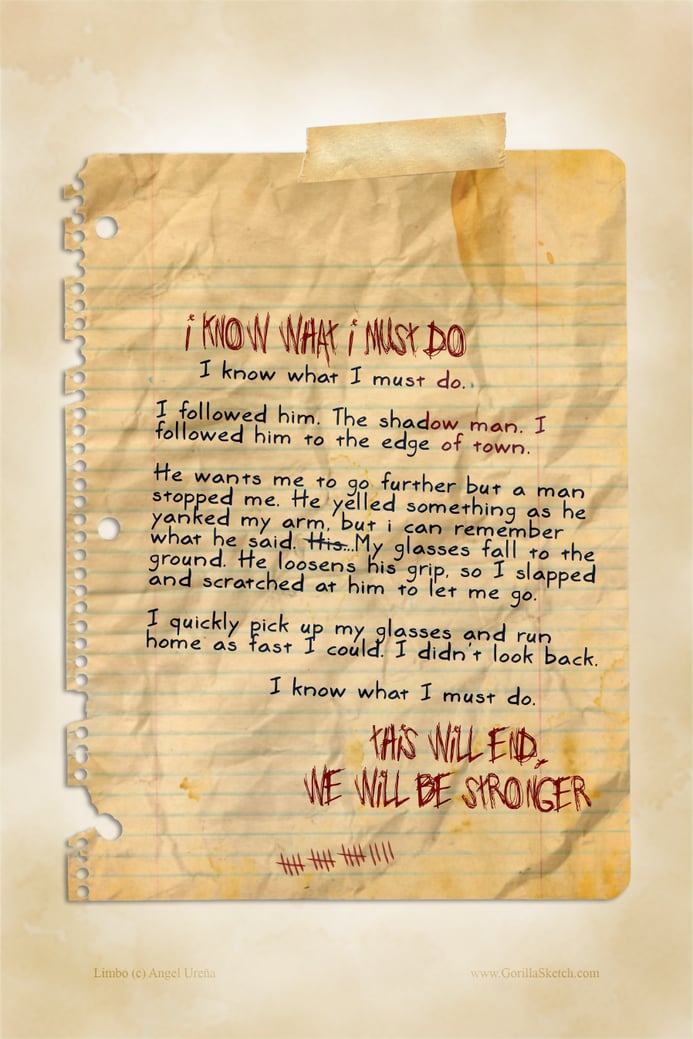 i KNOW WHAt i MUSt DO
I know what I must do.
I followed him. The shadow man. I
followed him to the edge of town.
He wants me to go further but a man
stopped me. He yelled something as he
yanked my arm, but i can remember
what he said. His...My glasses fall to the
ground. He loosens his grip, so I slapped
and scratched at him to let me go.
I quickly pick up my glasses and run
home as fast I could. I didn't look back.
I know what I must do.
tHiS WiLL END.
WE WiLL BE StRONGER
Limbo (c) Angel Ureña
www.GorillaSketch.com